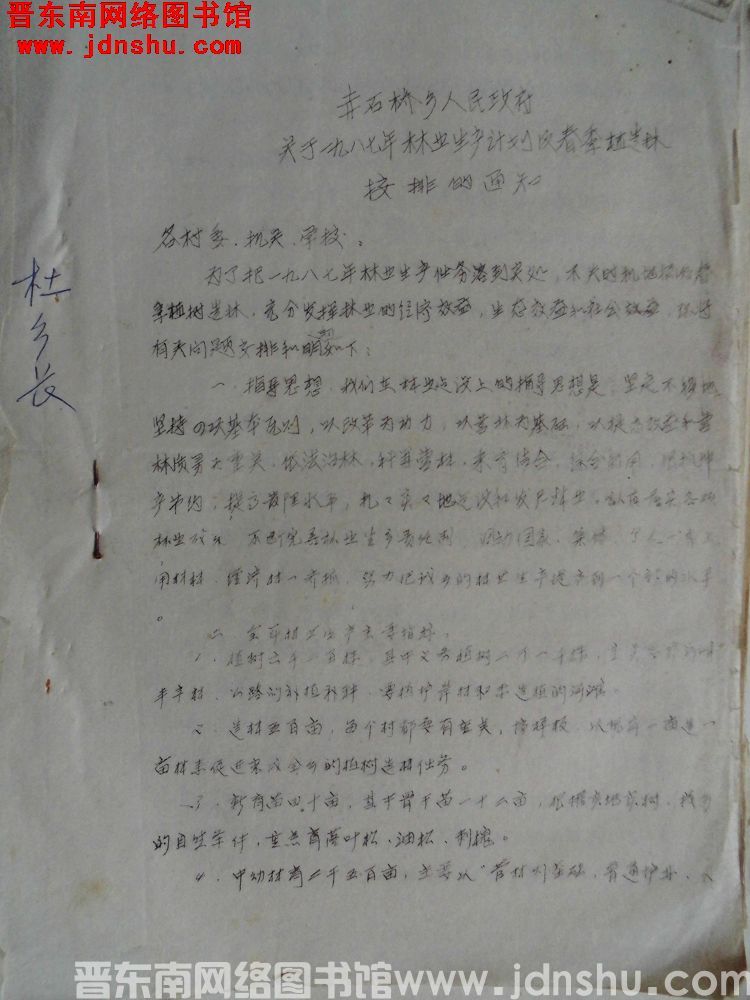 晋东南网络图书馆
www.jdnshu.com
赤石桥乡人民政府
关于一九八七年林业生产计划及春季植造林
按排的通知
各村委、机关、学校:
为了把一九八七年林业生产任务落到实处,不失时机地搞好春
季植树造林,充分发挥林业的经济效益,生态效益和社会效益,现将
有关问题安排和明如下:
一、指导思想,我们在林业建设上的指导思想是,坚定不移地
坚持四项基本原则,以改革为动力,以营林为基础,以提高效益和营
林质量为重点,依法治林,科学营林,
产节约,提高管理水平,扎々实々地建设和发展林业,
林业政策,不断完善林业生产责任制,调动国家、集体、个人一齐上
用材林、经济林一齐抓,努力把我乡的林业生产提高到一个新的水平
。
二、全年林业生产主要指标。
1、植树六千一百株,其中义务植树二千一千株,
平车村、公路的补植补种,要植护岸林和未造植的河滩。
2、造林五百亩,每个村都要有重点,
亩林来促进完成全乡的植树造林任务。
3、新育苗四十亩,其中骨干苗一十二亩,根据实地实树,我乡
的自然条件,重点育落叶松、油松、刺槐。
4、中幼林育二千五百亩,主要以
杜乡长
晋东南网络图书馆www.jdnshu.com